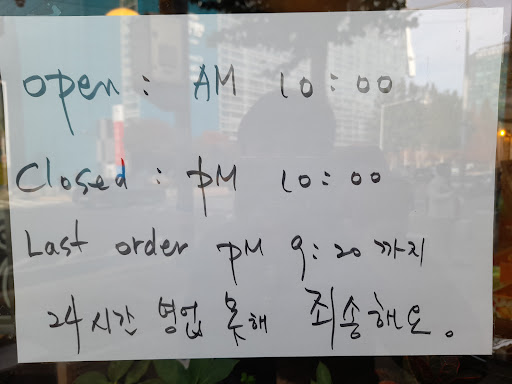 open : AM 10:00
Closed : PM 10:00
Last order PM 9:20 까지
24시간 영업 못해 죄송해요.